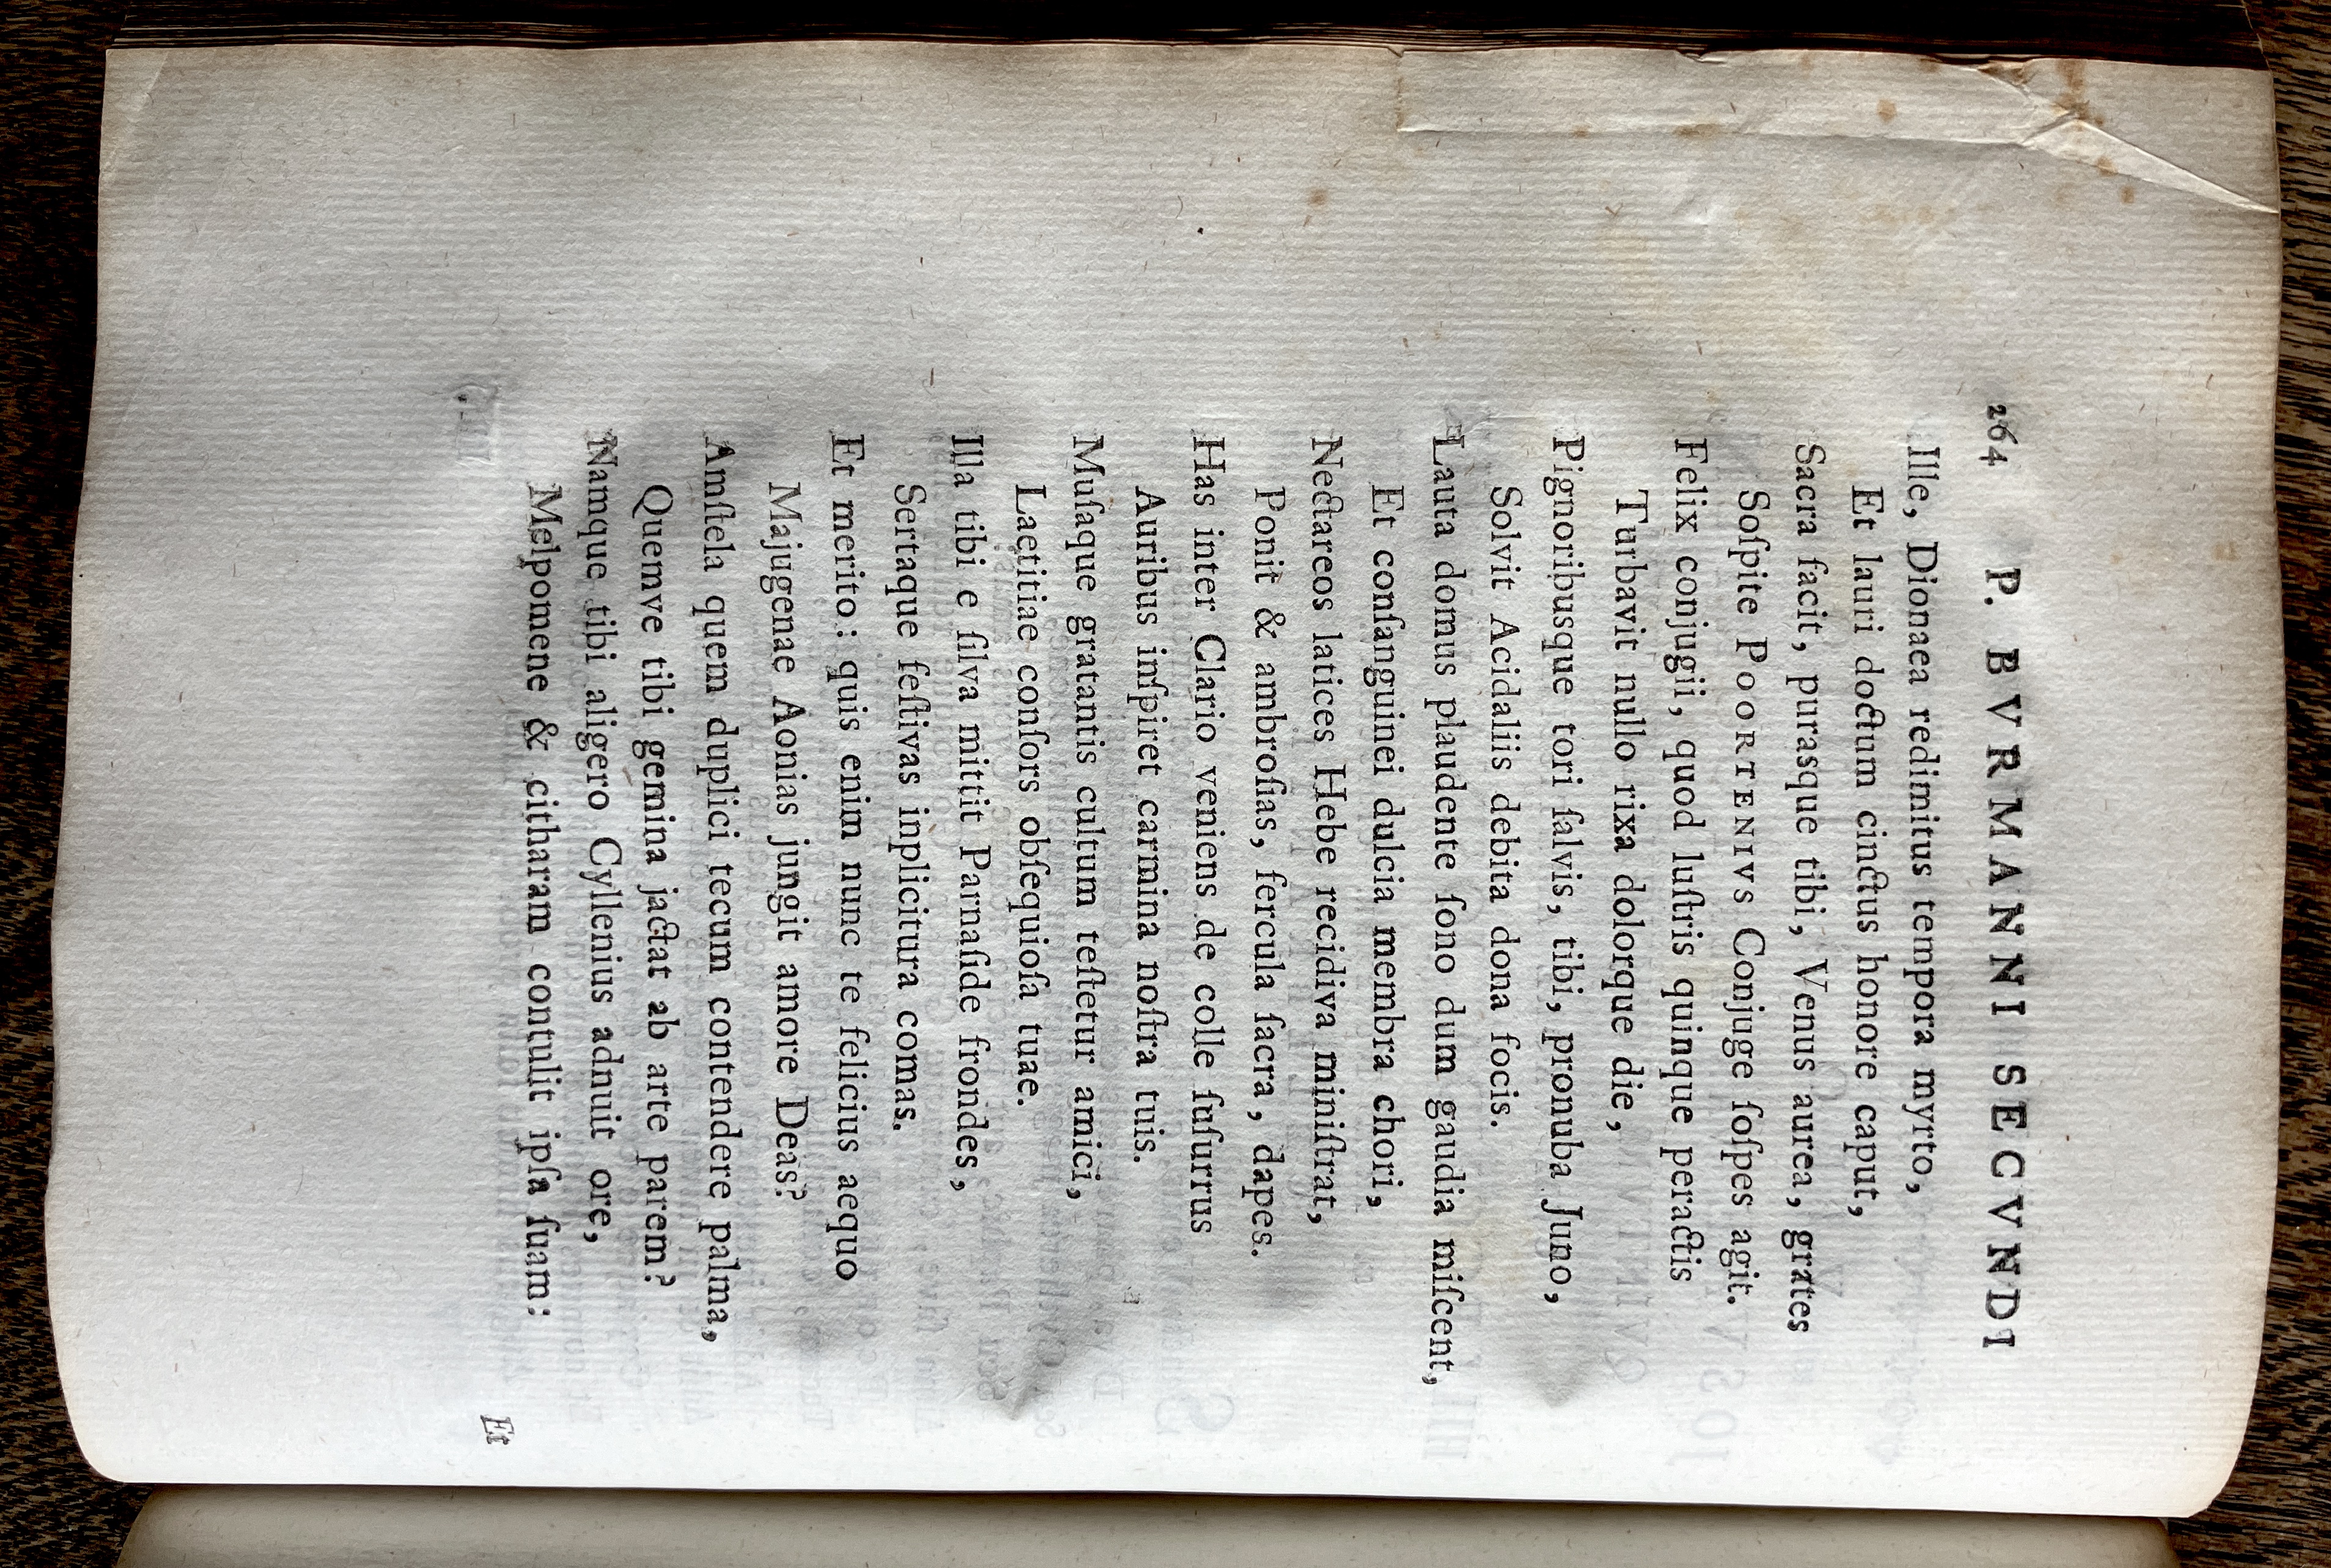 264 P. BVRMANNI SECVNDI
Ille, Dionaea redimitus tempora myrto,
Et lauri doctum cinctus honore caput,
Sacra facit, purasque tibi, Venus aurea, grates
Soſpite POORTENIVS Conjuge ſoſpes agit.
Felix conjugii, quod luſtris quinque peractis
Turbavit nullo rixa dolorque die,
Pignoribusque tori ſalvis, tibi, pronuba Juno,
Solvit Acidaliis debita dona focis.
Lauta domus plaudente ſono dum gaudia miſcent,
Et conſanguinei dulcia membra chori,
Nectareos latices Hebe recidiva miniſtrat,
Ponit & ambroſias, fercula ſacra, dapes.
Has inter Clario veniens de colle ſuſurrus
Auribus inſpiret carmina noſtra tuis.
Muſaque gratantis cultum teſtetur amici,
Laetitiae conſors obſequioſa tuae.
Illa tibi e ſilva mittit Parnaſide frondes,
Sertaque feſtivas inplicitura comas.
Et merito: quis enim nunc te felicius aequo
Majugenae Aonias jungit amore Deas?
Amſtela quem duplici tecum contendere palma,
Quemve tibi gemina jactat ab arte parem?
Namque tibi aligero Cyllenius adnuit ore,
Melpomene & citharam contulit ipſa ſuam:
Et